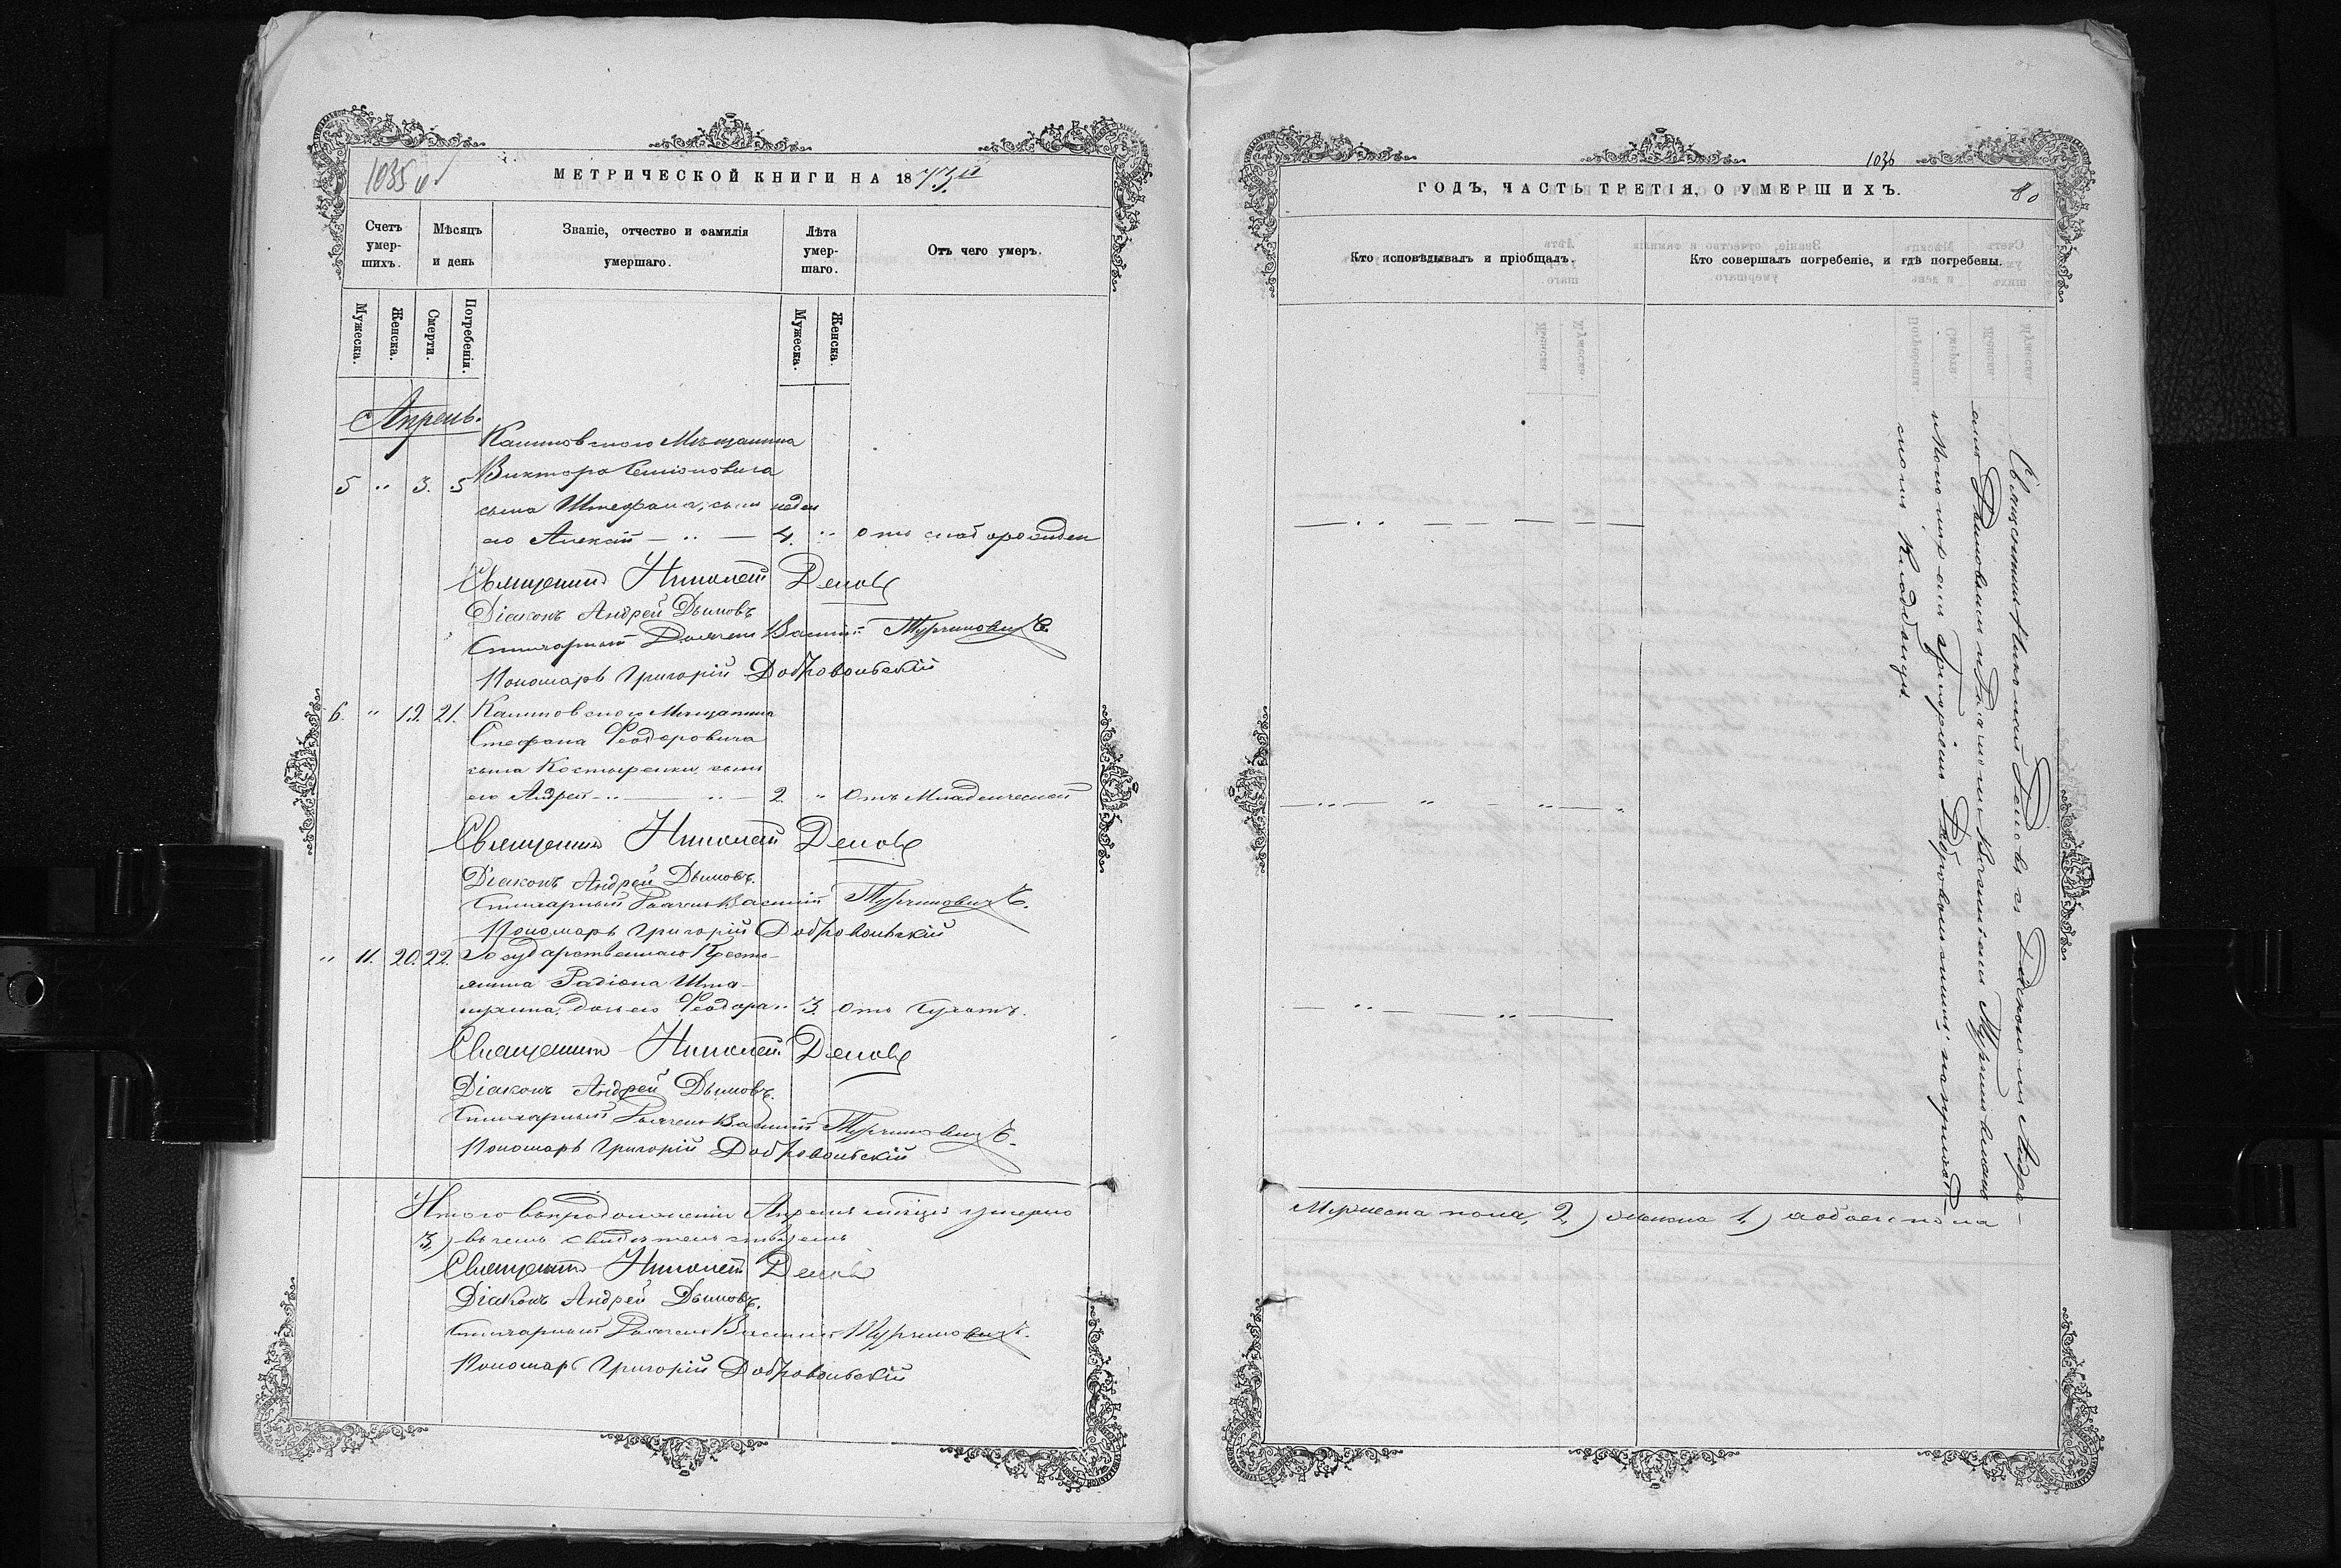 1035
МЕТРИЧЕСКОЙ КНИГИ НА 1873й
Счетъ умер-шихъ.
Мѣсяцъ и день
Званіе, отчество и фамилія умершаго.
Лѣта умер-шаго.
Отъ чего умеръ.
Мужеска.
Женска.
Смерти.
Погребенія.
Мужеска.
Женска.
Апрель.
Мѣщанина
5 " 3. 5 Виктора
сына Штефана, сынъ недел
его Алексѣй — " — 4. "
Священникъ Николай
Діаконъ Андрей Дымовъ
Стихарный Дьячекъ Василій Турчиновичъ.
Пономарь Григорій Добровольскій
6. " 19. 21. Мѣщанина
Стефана Феодоровича
сына Костыренки, сынъ
его Андрей — " — " 2. " Отъ Младенческой
Священникъ Николай
Діаконъ Андрей Дымовъ.
Стихарный Дьячекъ Василій Турчиновичъ.
Пономарь Григорій Добровольскій
" 11. 20. 22. Государственнаго Кресть-
янина Радіона
дочь его Феодора " 3. Отъ Сухотъ.
Священникъ Николай
Діаконъ Андрей Дымовъ.
Стихарный Дьячекъ Василій Турчиновичъ.
Пономарь Григорій Добровольскій
Итого въ продолженіи Апреля мѣсяца умерло
3, въ чемъ свидѣтельствуемъ
Священникъ Николай
Діаконъ Андрей Дымовъ.
Стихарный Дьячекъ Василій Турчиновичъ.
Пономарь Григорій Добровольскій
1036
ГОДЪ, ЧАСТЬ ТРЕТІЯ, О УМЕРШИХЪ.
80
Кто исповѣдывалъ и пріобщалъ.
Кто совершалъ погребеніе, и гдѣ погребены.
Священникъ Николай съ Діакономъ Андре-
емъ Дымовымъ и Дьячкомъ Василіемъ Турчиновичемъ
и Пономаремъ Григоріемъ Добровольскимъ, на приход-
скомъ Кладбищѣ.
Мужеска пола, 2, женска 1, а обоего пола